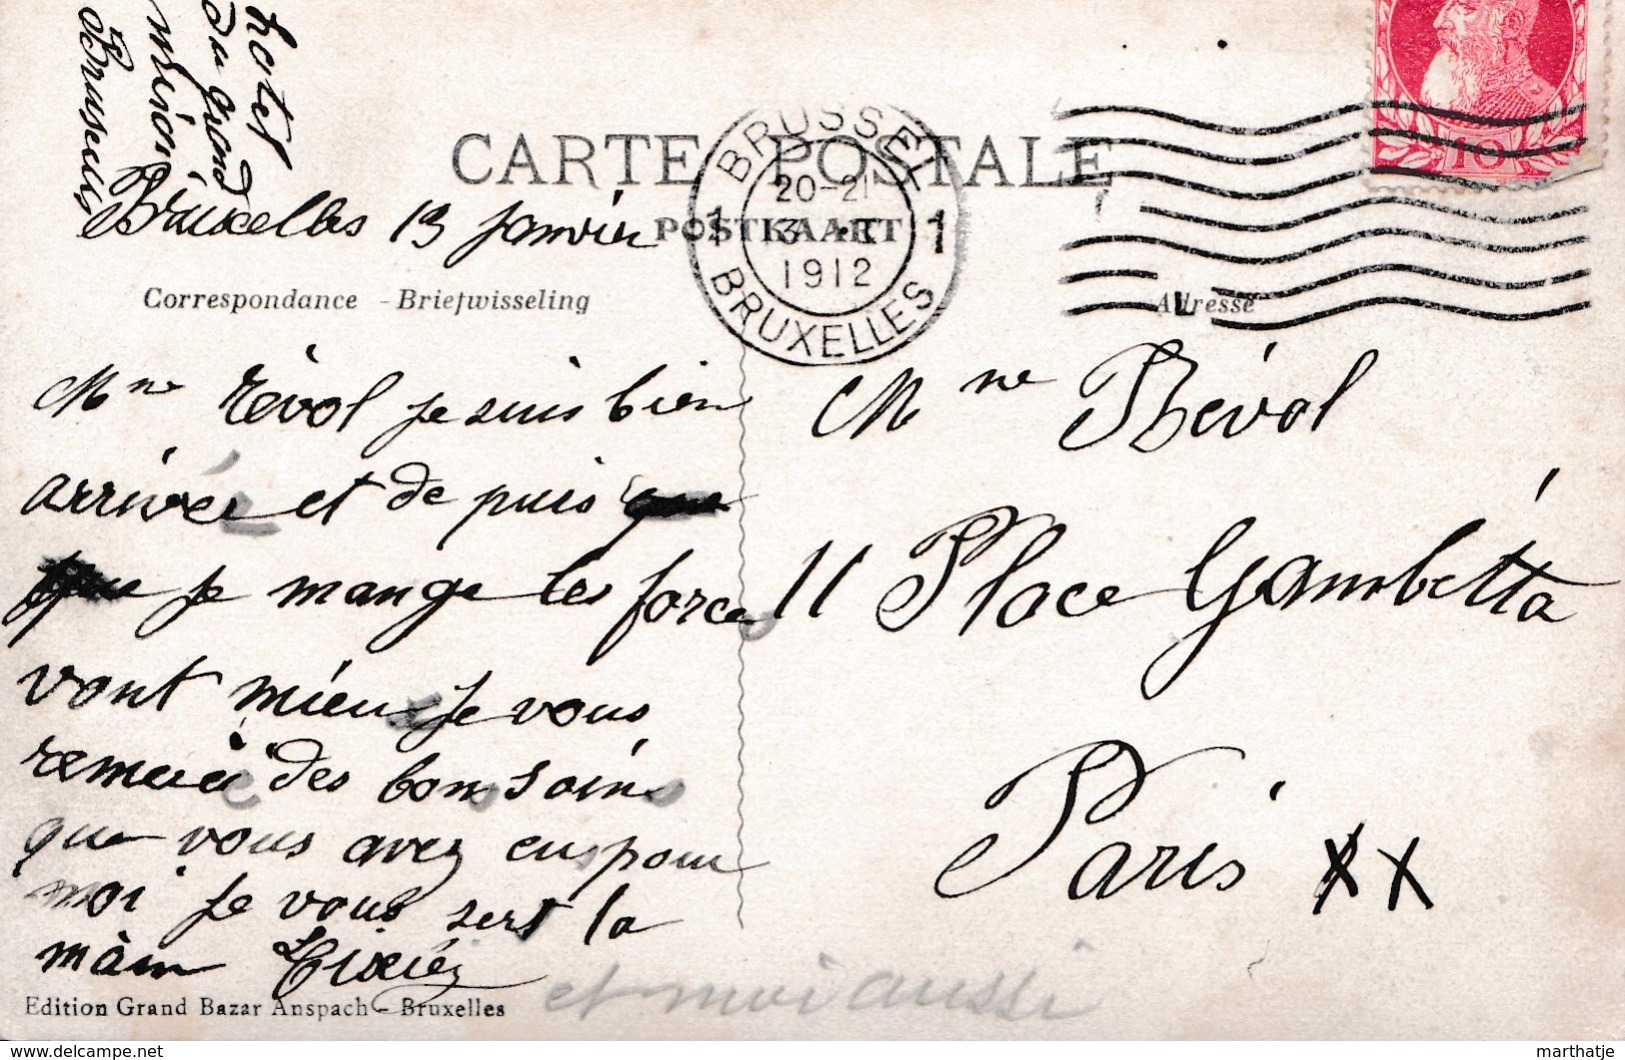 hotel
du grand
miroir
Bruxelles
CARTE POSTALE
POSTKAART
Bruxelles 13 janvier
BRUSSEL
20-21
3 I
1912
1 1
BRUXELLES
10
Correspondance - Briefwisseling
Adresse
Mme Révol je suis bien
arrivér et de puis que
que je mange les force
vont mieu je vous
remerci des bons soins
que vous avez eus pour
moi je vous sert la
main Tixiéz
et moi aussi
Mme Révol
11 Place Gambetta
Paris XX
Edition Grand Bazar Anspach - Bruxelles
delcampe.net
marthatje